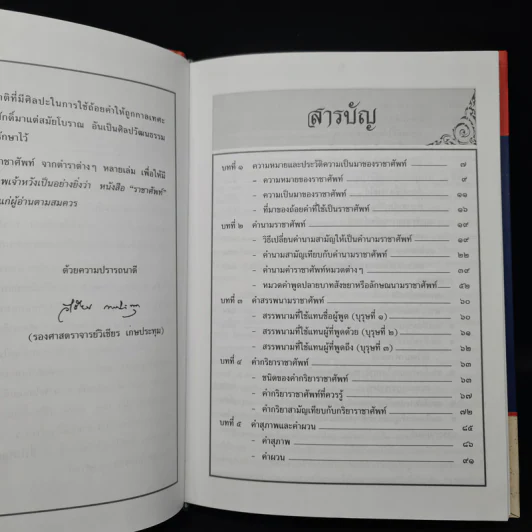 าติที่มีศิลปะในการใช้ถ้อยคำให้ถูกกาลเทศะ
ักดิ์มาแต่สมัยโบราณ อันเป็นศิลปวัฒนธรรม
ักษาไว้
าชาศัพท์ จากตำราต่างๆ หลายเล่ม เพื่อให้มี
พเจ้าหวังเป็นอย่างยิ่งว่า หนังสือ "ราชาศัพท์"
แก่ผู้อ่านตามสมควร
ด้วยความปรารถนาดี
(รองศาสตราจารย์วิเชียร เกษประทุม)
สารบัญ
บทที่ ๑ ความหมายและประวัติความเป็นมาของราชาศัพท์ ๗
- ความหมายของราชาศัพท์ ๙
- ความเป็นมาของราชาศัพท์ ๑๑
- ที่มาของถ้อยคำที่ใช้เป็นราชาศัพท์ ๑๖
บทที่ ๒ คำนามราชาศัพท์ ๑๙
- วิธีเปลี่ยนคำนามสามัญให้เป็นคำนามราชาศัพท์ ๑๙
- คำนามสามัญเทียบกับคำนามราชาศัพท์ ๒๒
- คำนามคำราชาศัพท์หมวดต่างๆ ๓๙
- หมวดคำพูดปลายบาทสังขยาหรือลักษณนามราชาศัพท์ ๕๒
บทที่ ๓ คำสรรพนามราชาศัพท์ ๖๐
- สรรพนามที่ใช้แทนชื่อผู้พูด (บุรุษที่ ๑) ๖๐
- สรรพนามที่ใช้แทนผู้ที่พูดด้วย (บุรุษที่ ๒) ๖๑
- สรรพนามที่ใช้แทนผู้ที่พูดถึง (บุรุษที่ ๓) ๖๒
บทที่ ๔ คำกริยาราชาศัพท์ ๖๓
- ชนิดของคำกริยาราชาศัพท์ ๖๓
- คำกริยาราชาศัพท์ที่ควรรู้ ๖๗
- คำกริยาสามัญเทียบกับกริยาราชาศัพท์ ๗๒
บทที่ ๕ คำสุภาพและคำผวน ๘๕
- คำสุภาพ ๘๖
- คำผวน ๙๑